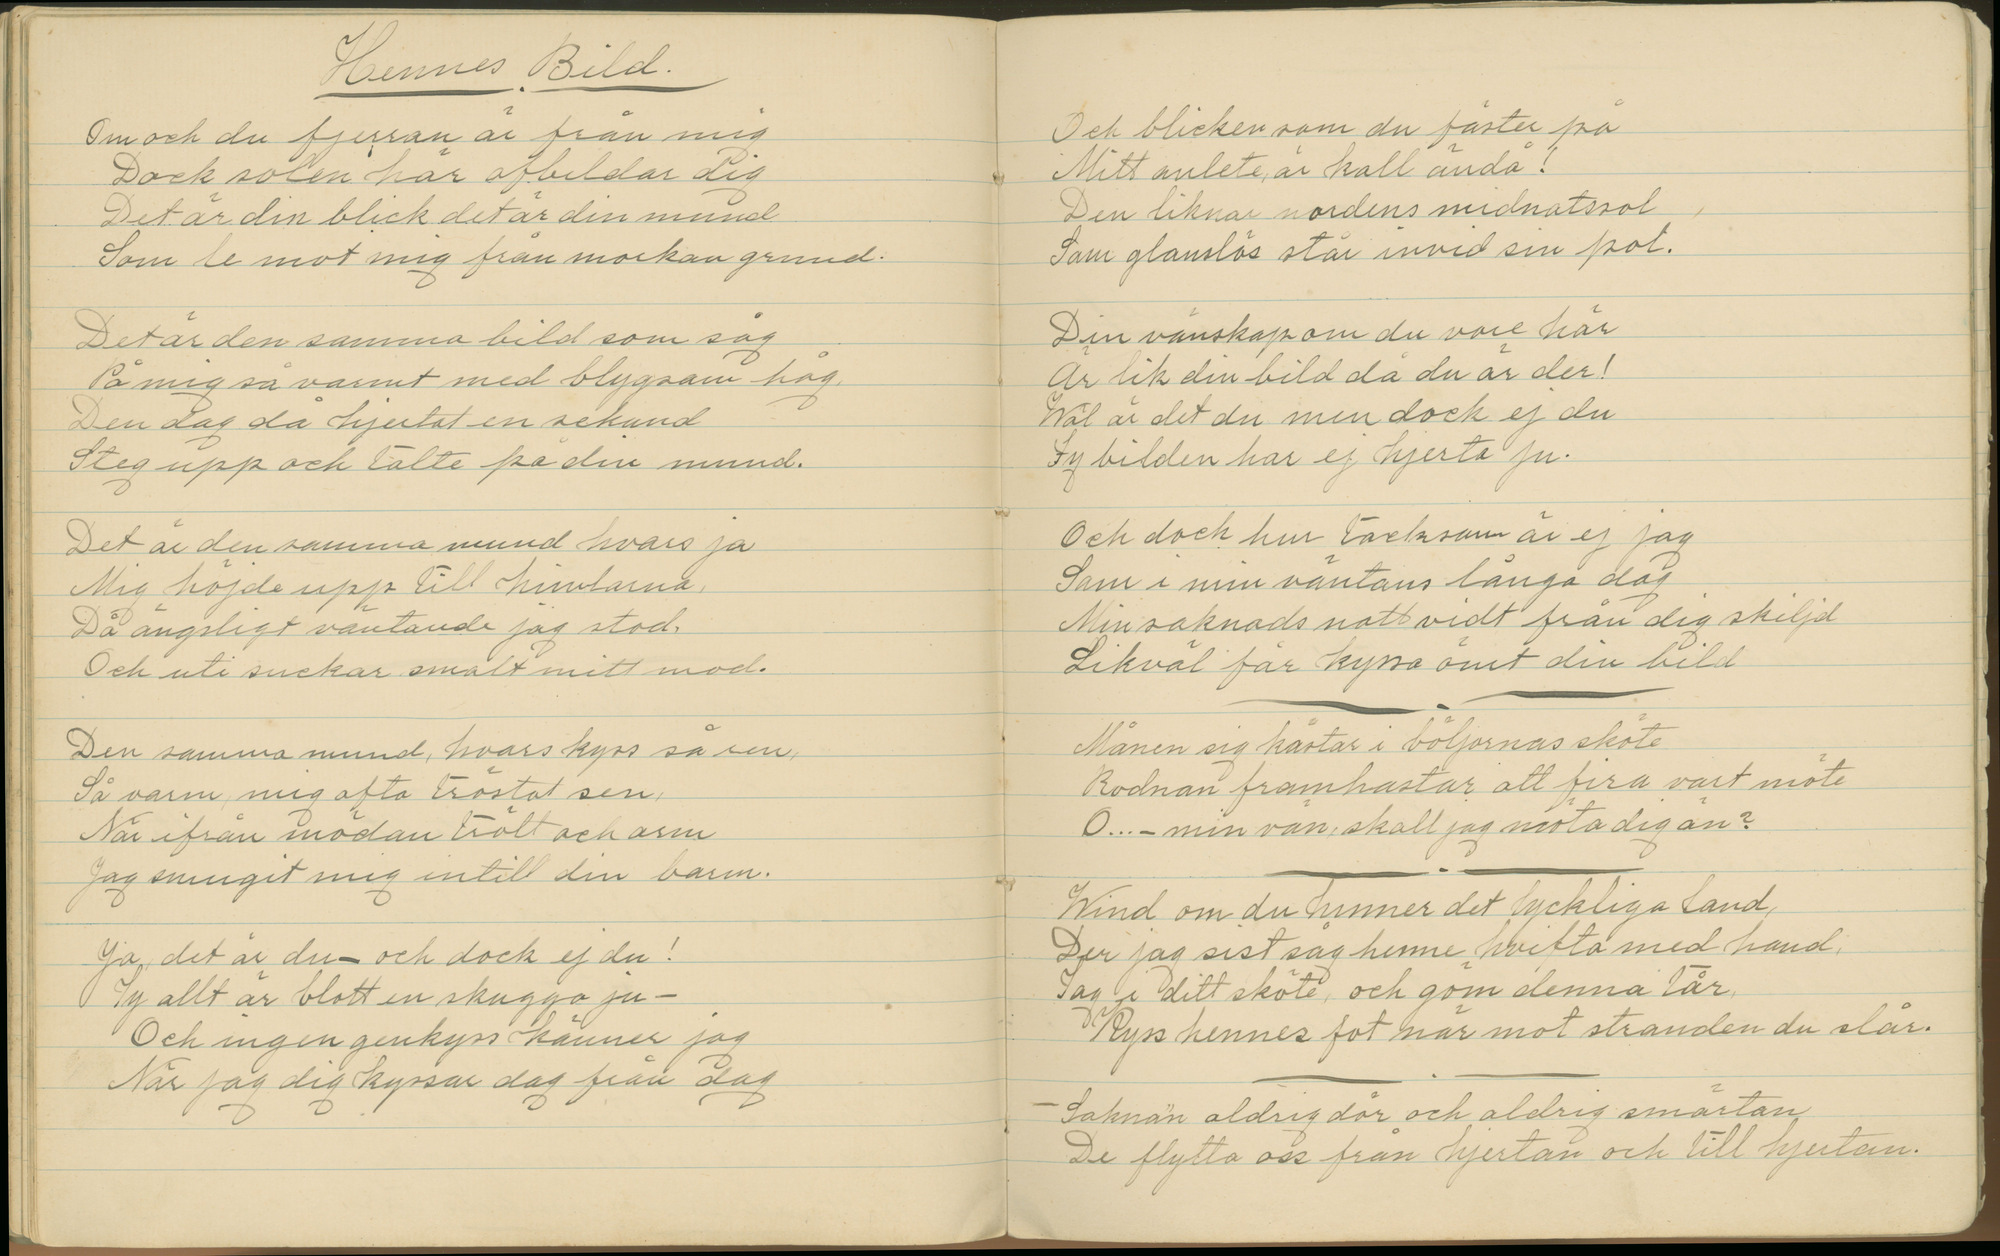 Hennes Bild.
Om och du fjerran är från mig
Dock solen här afbildar dig
Det är din blick det är din mund
Som le mot mig från morkan grund.
Det är den samma bild som såg
På mig så varmt med blygsam håg,
Den dag då hjertat en sekund
Steg upp och talte på din mund.
Det är den samma mund hvars ja
Mig höjde upp till himlarna,
Då ängsligt väntande jag stod,
Och uti suckar smalt mitt mod.
Den samma mund, hvars kyss så ren,
Så varm, mig ofta tröstat sen,
När ifrån mödan trött och arm
Jag smugit mig intill din barm.
Ja, det är du – och dock ej du!
Ty allt är blott en skugga ju –
Och ingen genkyss känner jag
När jag dig kyssar dag från dag
Och blicken som du fäster på
Mitt anlete, är kall ändå!
Den liknar nordens midnatssol,
Som glanslös står invid sin pol.
Din vänskap om du vore här
Är lik din bild då du är der!
Wäl är det du men dock ej du
Ty bilden har ej hjerta ju.
Och dock hur tacksam är ej jag
Som i min väntans långa dag
Min saknads natt vidt från dig skiljd
Likväl får kyssa ömt din bild
Månen sig kastar i böljornas sköte
Rodnan framhastar att fira vart möte
O... – min vän, skall jag möta dig än?
Wind om du hinner det lyckliga land,
Der jag sist såg henne hvifta med hand,
Tag i ditt sköte, och göm denna tår,
Kyss hennes fot när mot stranden du slår.
– Saknan aldrig dör och aldrig smärtan
De flytta oss från hjertan och till hjertan.